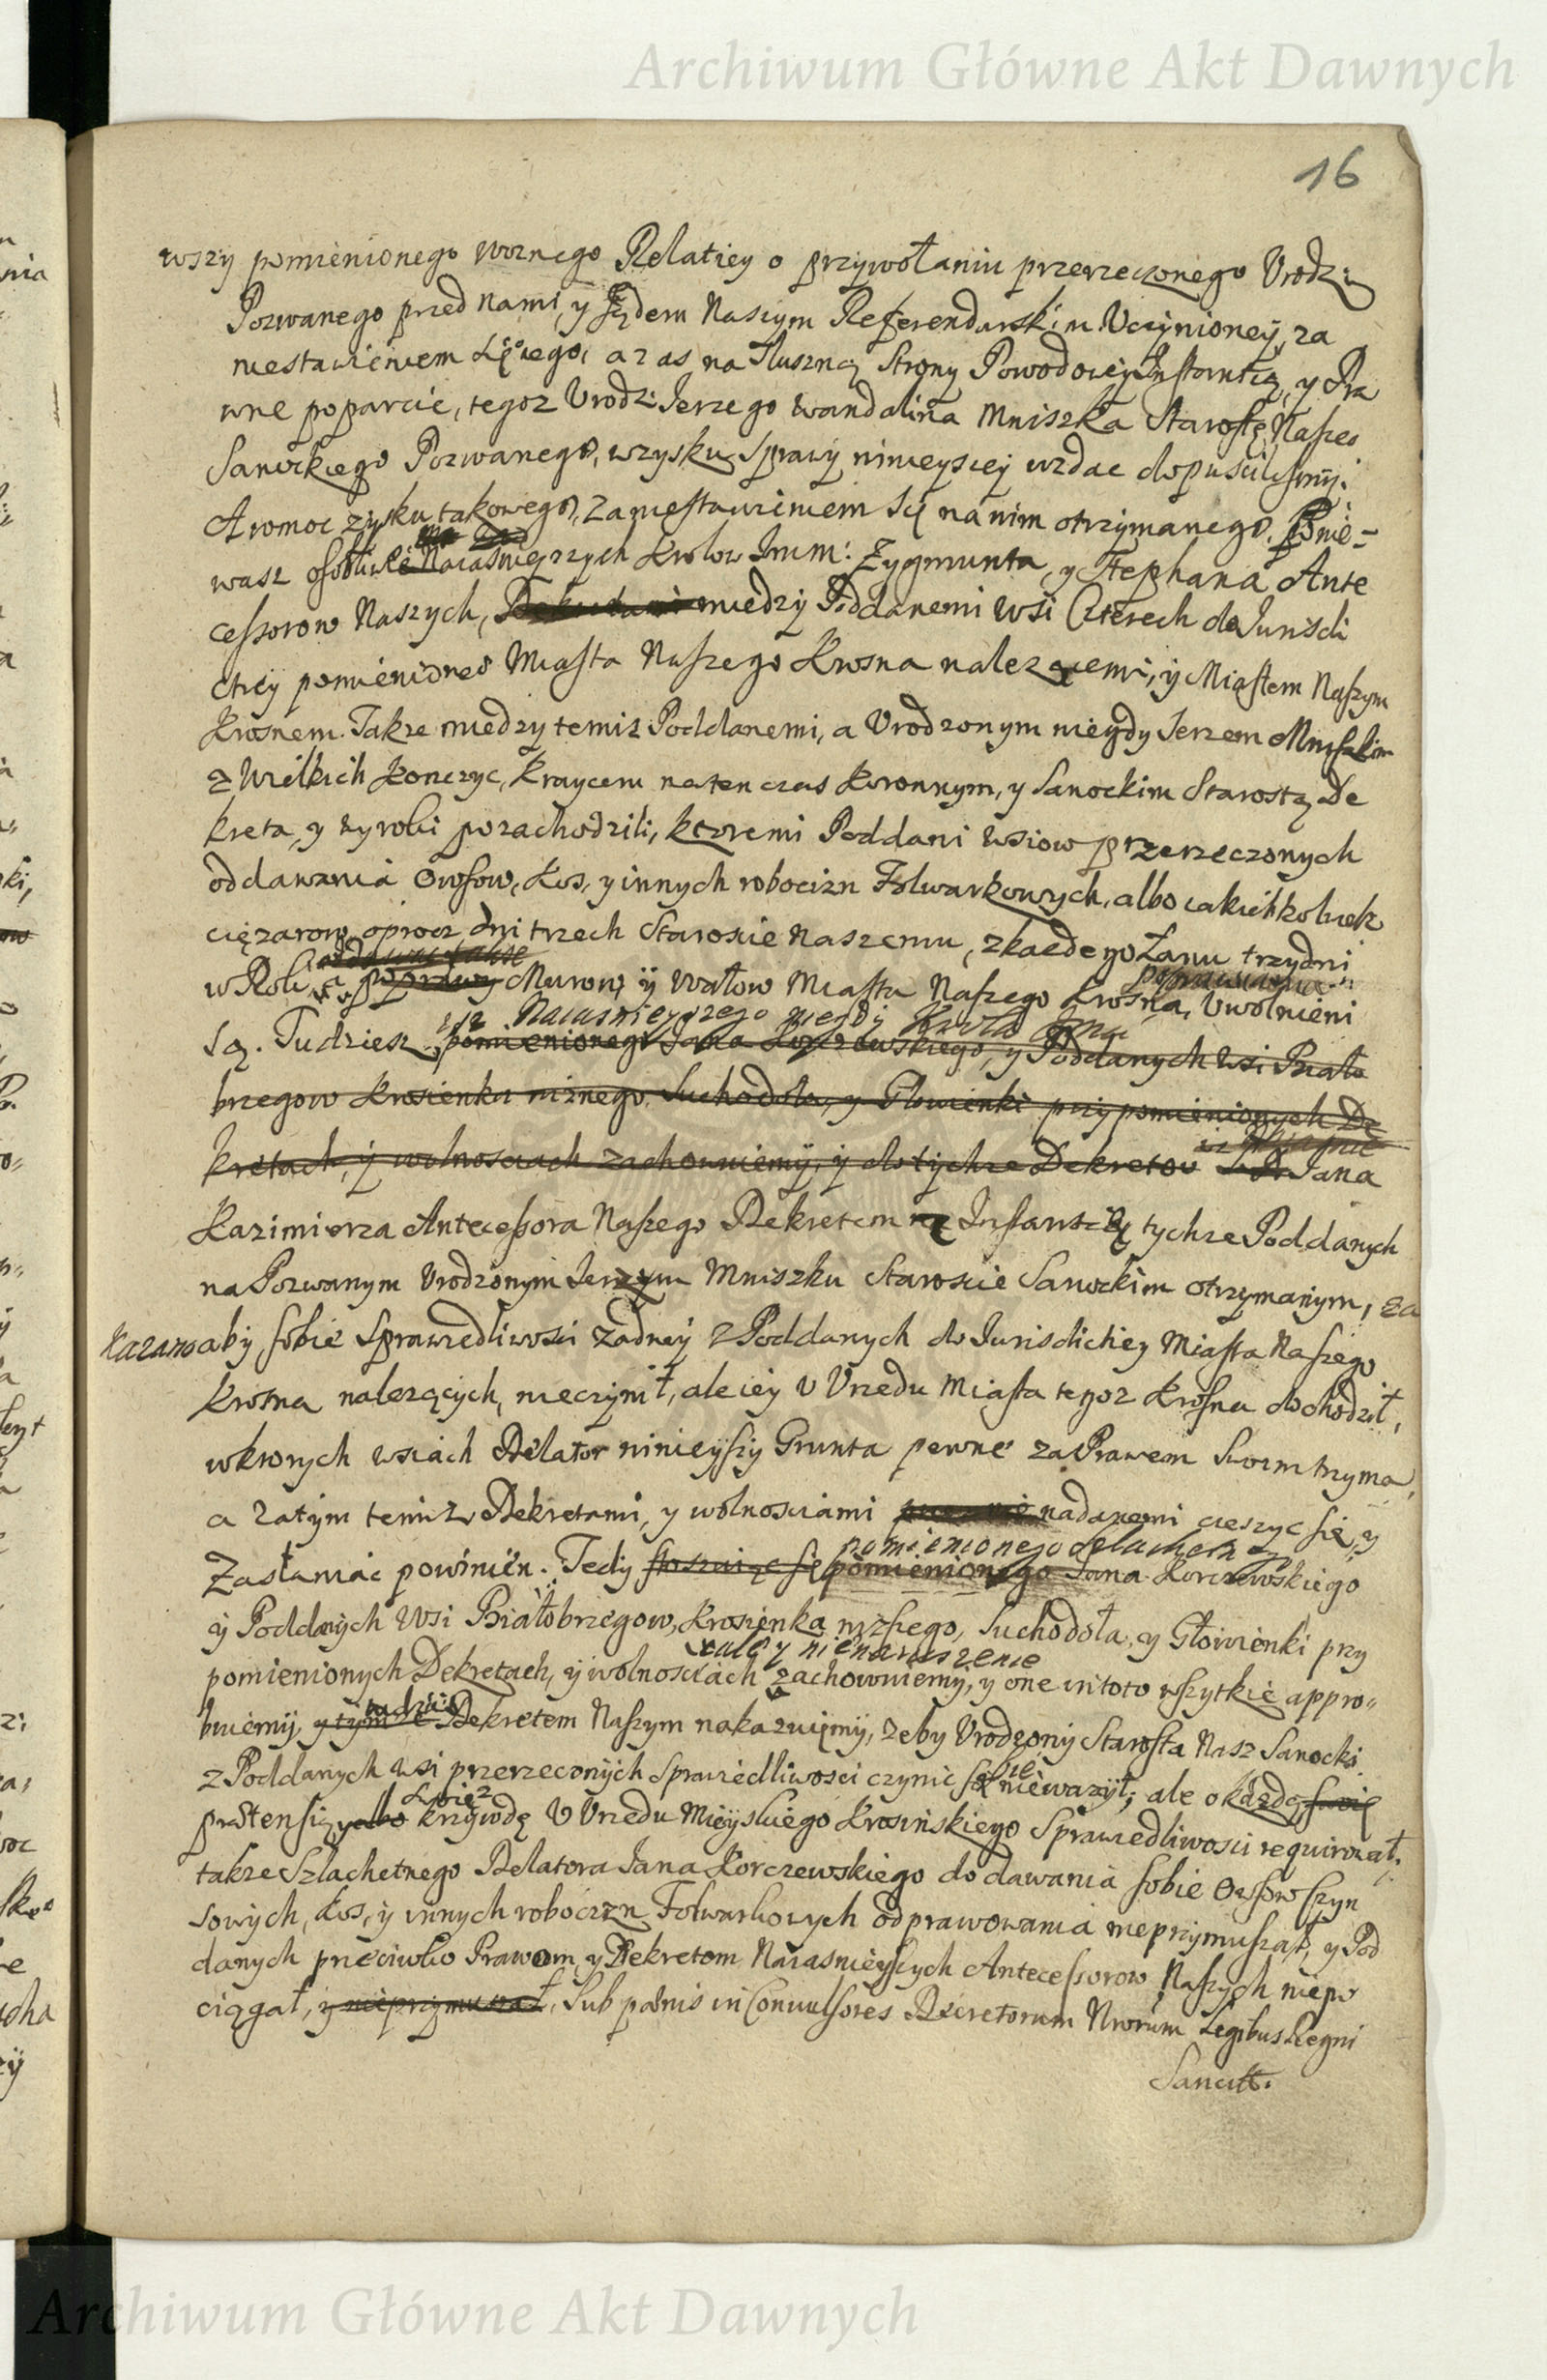 Archiwum Główne Akt Dawnych
16
wszy pomienionego woznego Relatiey o przywołaniu przerzeczonego Vrodz:
Pozwanego przed nami, y Sądem Naszym Referendarskim Vczynioney, za
niestawieniem się iego, a zas na słuszną Strony Powodowey Instantią, y Pra
wne poparcie, tegoz Vrodz: Jerzego Wandalina Mniszka Starostę Naszeo
Sanockiego Pozwanego, wzysku Sprawy ninieyszey wzdac dopuscilismy.
A w moc zysku takowego, za niestawieniem się na nim otrzymanego. Ponie=
wasz osobliwe Naiasnieyszych Krolow Imm: Zygmunta, y Stephana Ante
cessorow Naszych, miedzy Poddanemi Wsi Czterech do Jurisdi
ctiey pomienioneo Miasta Naszego Krosna nalezącemi, y Miastem Naszym
Krosnem. Takze miedzy temiz Poddanemi, a Vrodzonym niegdy Jerzem Mniszkiem
z Wielkich Konczyc, Kraycem na ten czas Koronnym, y Sanockim Starostą De
kreta, y wyroki pozachodzili, ktoremi Poddani wsiow przerzeczonych
od dawania Owsow, Kos, y innych robocizn Folwarkowych, albo iakichkolwiek
ciężarow, oprocz dni trzech Staroscie Naszemu, z kazdego Łanu trzy dni
w Roku, a poprawy Murow, y Wałow Miasta Naszego Krosna, Vwolnieni
Naiasnieyszego niegdy Krola
są. Tudziesz pomienionego Jana Korczewskiego, y Poddanych Wsi Biało
brzegow Krosienka niznego Suchodoła, y Głowienki przy pomienionych De
kretach, y wolnosciach zachowuiemy, y do tychze Dekretow Jana
Kazimierza Antecessora Naszego Dekretem Instantią tychze Poddanych
na Pozwanym Vrodzonym Jerzym Mniszku Staroscie Sanockim otrzymanym, za
kazano aby sobie Sprawiedliwosci zadney z Poddanych do Jurisdictiey Miasta Naszego
Krosna nalezących, nieczynił, ale iey v Vrzedu Miasta tegoz Krosna dochodził,
w ktorych wsiach Delator ninieyszy Grunta pewne za Prawem Swoim trzyma,
a zatym temiz Dekretami, y wolnosciami nadanemi cieszyc się, y
pomienionego Slachetn
Zasłaniac powinien. Tedy stosuiąc się pomienionego Jana Korczewskiego
y Poddanych Wsi Białobrzegow, Krosienka nizszego, Suchodoła, y Głowienki przy
cale y nienaruszenie
pomienionych Dekretach, y wolnosciach zachowuiemy, y one in toto wszytkie appro=
buiemy, y tym Dekretem Naszym nakazuiemy, zeby Vrodzony Starosta Nasz Sanocki
z Poddanych wsi przerzeczonych Sprawiedliwosci czynic sobie niewazył, ale o kazdą swoię
swoię
praetensią, albo krzywdę v Vrzedu Mieyskiego Krosinskiego Sprawiedliwosci requirował,
takze Szlachetnego Delatora Jana Korczewskiego do dawania sobie Owsow Czyn
sowych, Kos, y innych robocizn Folwarkowych odprawowania nieprzymuszał, y Pod
danych przeciwko Prawom, y Dekretom Naiasnieyszych Antecessorow Naszych niepo
ciągał, y nieprzymuszał, Sub paenis in Convulsores Decretorum Nrorum Legibus Regni
Sancitt.
Archiwum Główne Akt Dawnych